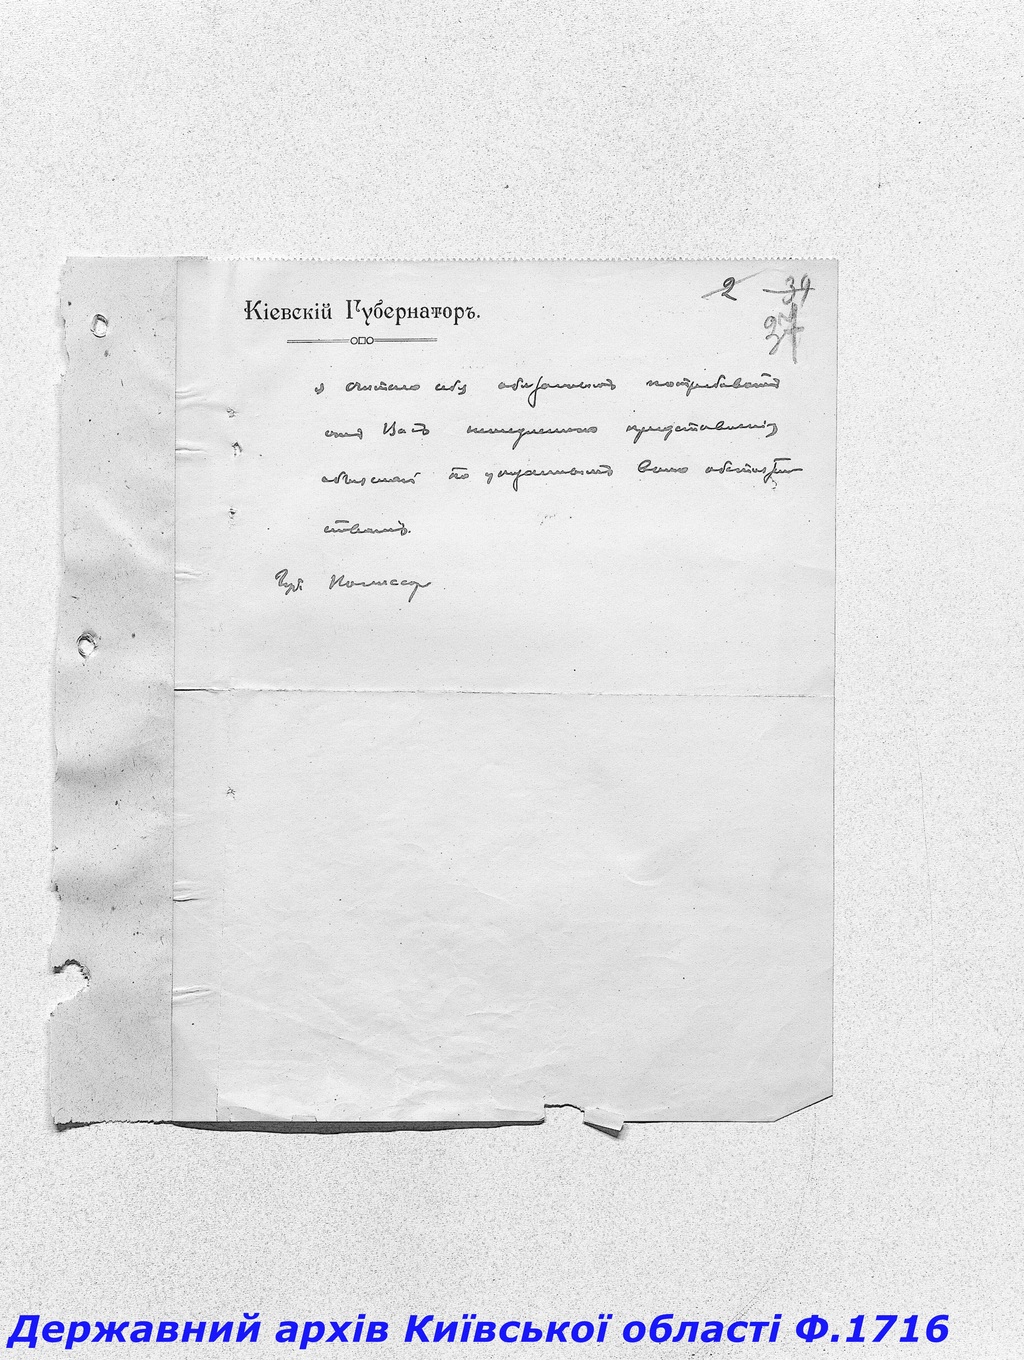 2 39
37
Кіевскій Губернаторъ.
я считаю себя обязаннымъ потребовать
отъ Васъ немедленно представленія
объясненій по указаннымъ выше обстоятель
ствамъ.
Губ. Комиссар
Державний архів Київської області Ф.1716